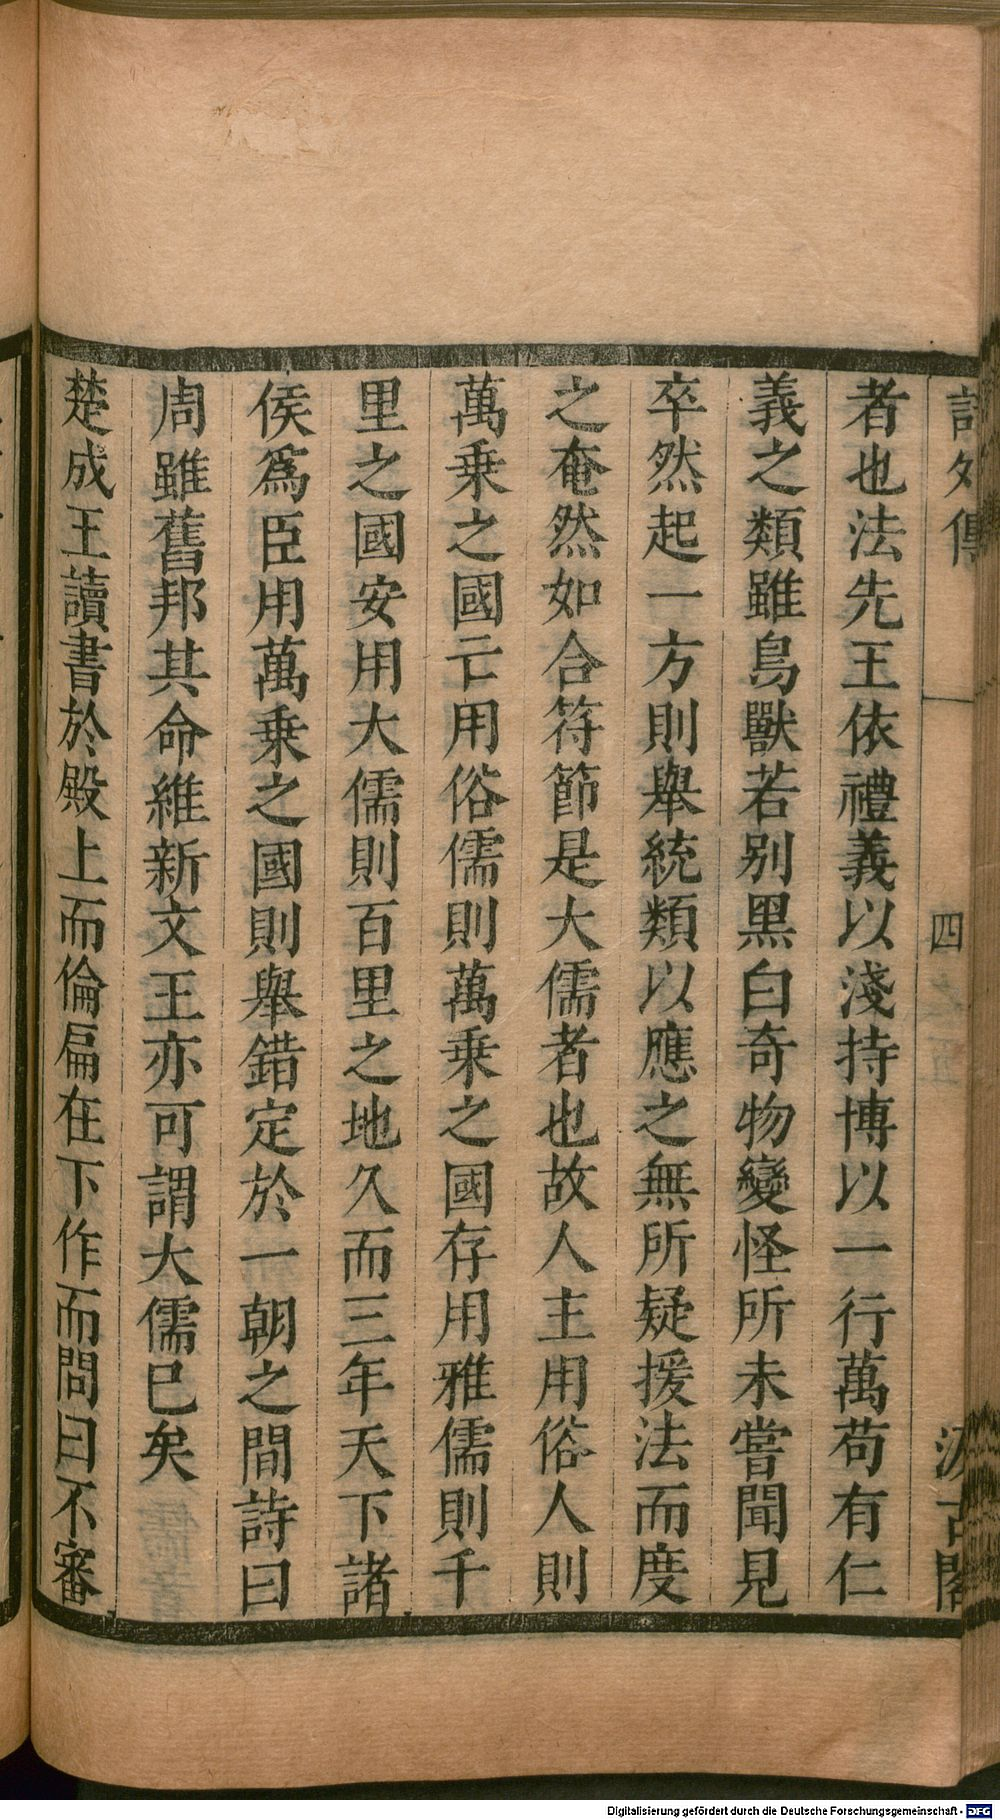 詩外傳
四
汲古閣
者也法先王依禮義以淺持博以一行萬苟有仁
義之類雖鳥獸若別黑白奇物變怪所未嘗聞見
卒然起一方則舉統類以應之無所疑援法而度
之奄然如合符節是大儒者也故人主用俗人則
萬乗之國亡用俗儒則萬乗之國存用雅儒則千
里之國安用大儒則百里之地久而三年天下諸
侯爲臣用萬乗之國則舉錯定於一朝之間詩曰
周雖舊邦其命維新文王亦可謂大儒巳矣
楚成王讀書於殿上而倫扁在下作而問曰不審
Digitalisierung gefördert durch die Deutsche Forschungsgemeinschaft - DFG